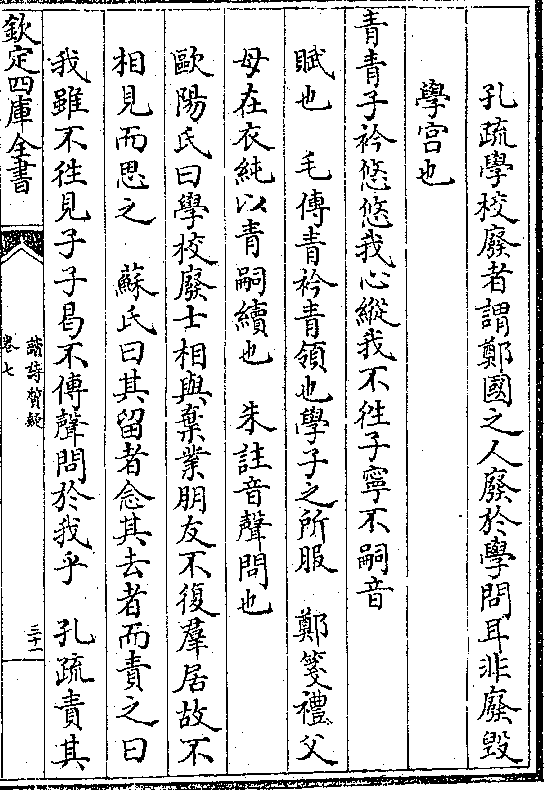 孔疏學校廢者謂鄭國之人廢於學問耳非廢毀
學宮也
青青子衿悠悠我心縱我不徃子寧不嗣音
賦也　毛傳青衿青領也學子之所服　鄭箋禮父
母在衣純以青嗣續也　朱註音聲問也
歐陽氏曰學校廢士相與棄業朋友不復羣居故不
相見而思之　蘇氏曰其留者念其去者而責之曰
我雖不徃見子子曷不傳聲問於我乎　孔疏責其
欽定四庫全書
讀詩質疑
卷七
三十一